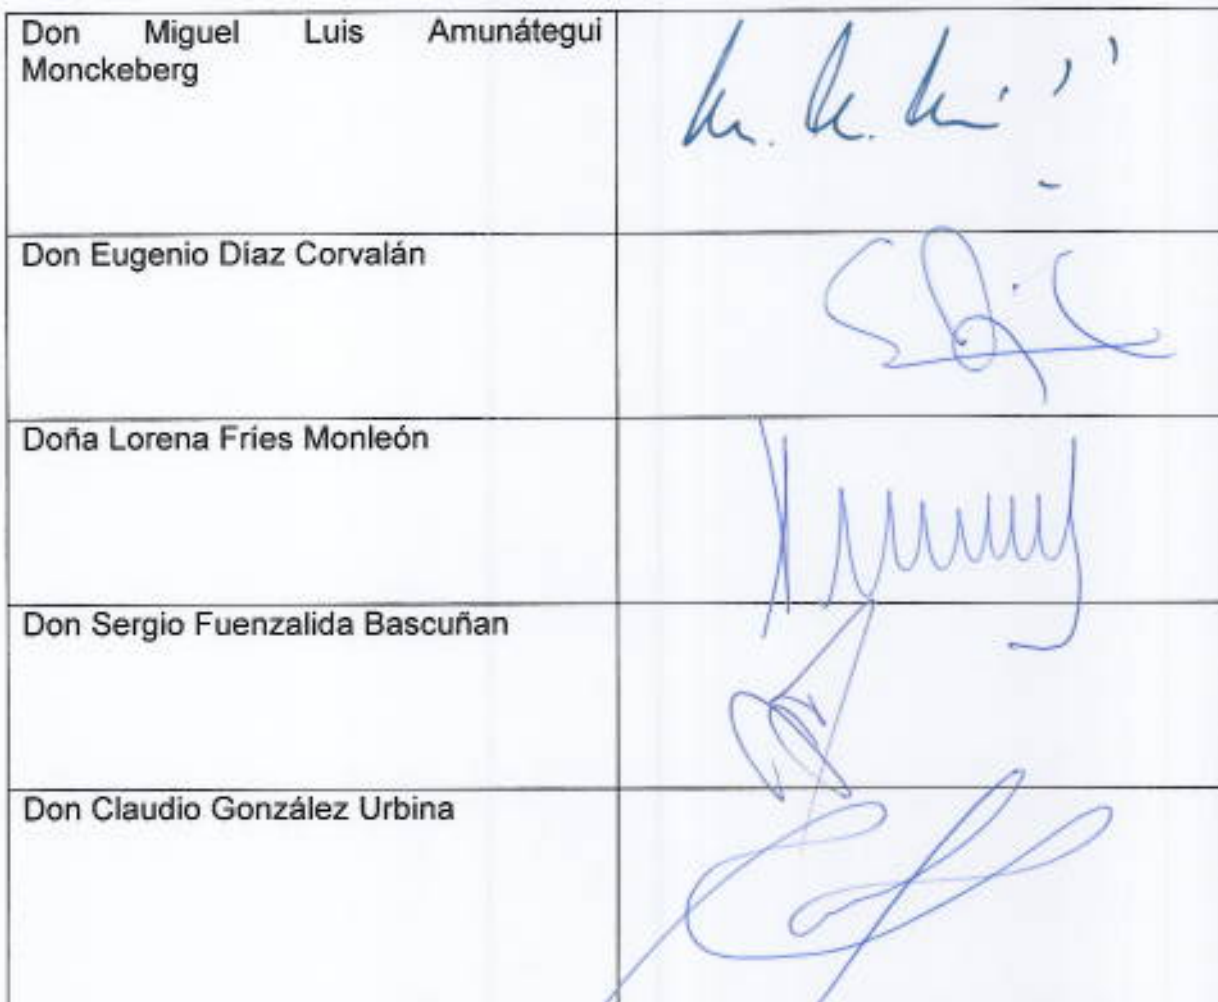 Don Miguel Luis Amunátegui
Monckeberg
Don Eugenio Díaz Corvalán
Doña Lorena Fríes Monleón
Don Sergio Fuenzalida Bascuñan
Don Claudio González Urbina